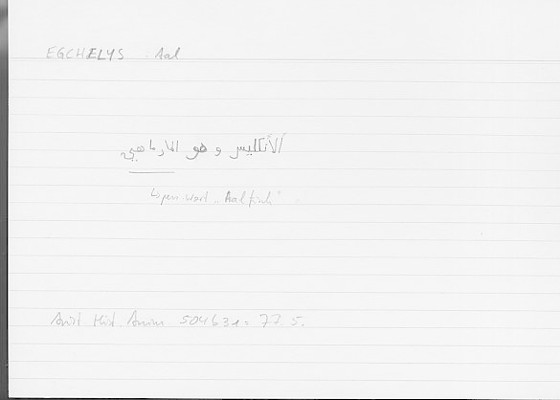 EGCHELYS Aal
الأنكليس و هو المارماهي
pers. Wort „Aalfisch“
Arist Hist. Anim = 77 5.